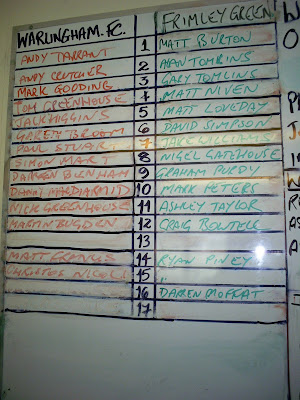 WARLINGHAM. FC. FRIMLEY GREEN
ANDY TARRANT 1 MATT BURTON
ANDY CRUTCHER 2 ALAN TOMKINS
MARK GOODING 3 GARY TOMLINS
TOM GREENHOUSE 4 MATT NIVEN
JACK HIGGINS 5 MATT LOVEDAY
GARETH BROOM 6 DAVID SIMPSON
PAUL STUART 7 JAKE
SIMON MART 8 NIGEL GATEHOUSE
DARREN BENHAM 9 GRAHAM PURDY
DANNY 10 MARK PETERS
NICK GREENHOUSE 11 ASHLEY TAYLOR
MARTIN BUGDEN 12 CRAIG
13
MATT FRANCE 14 RYAN PINEY
NICOLI 15
16 DARREN MOFFAT
17